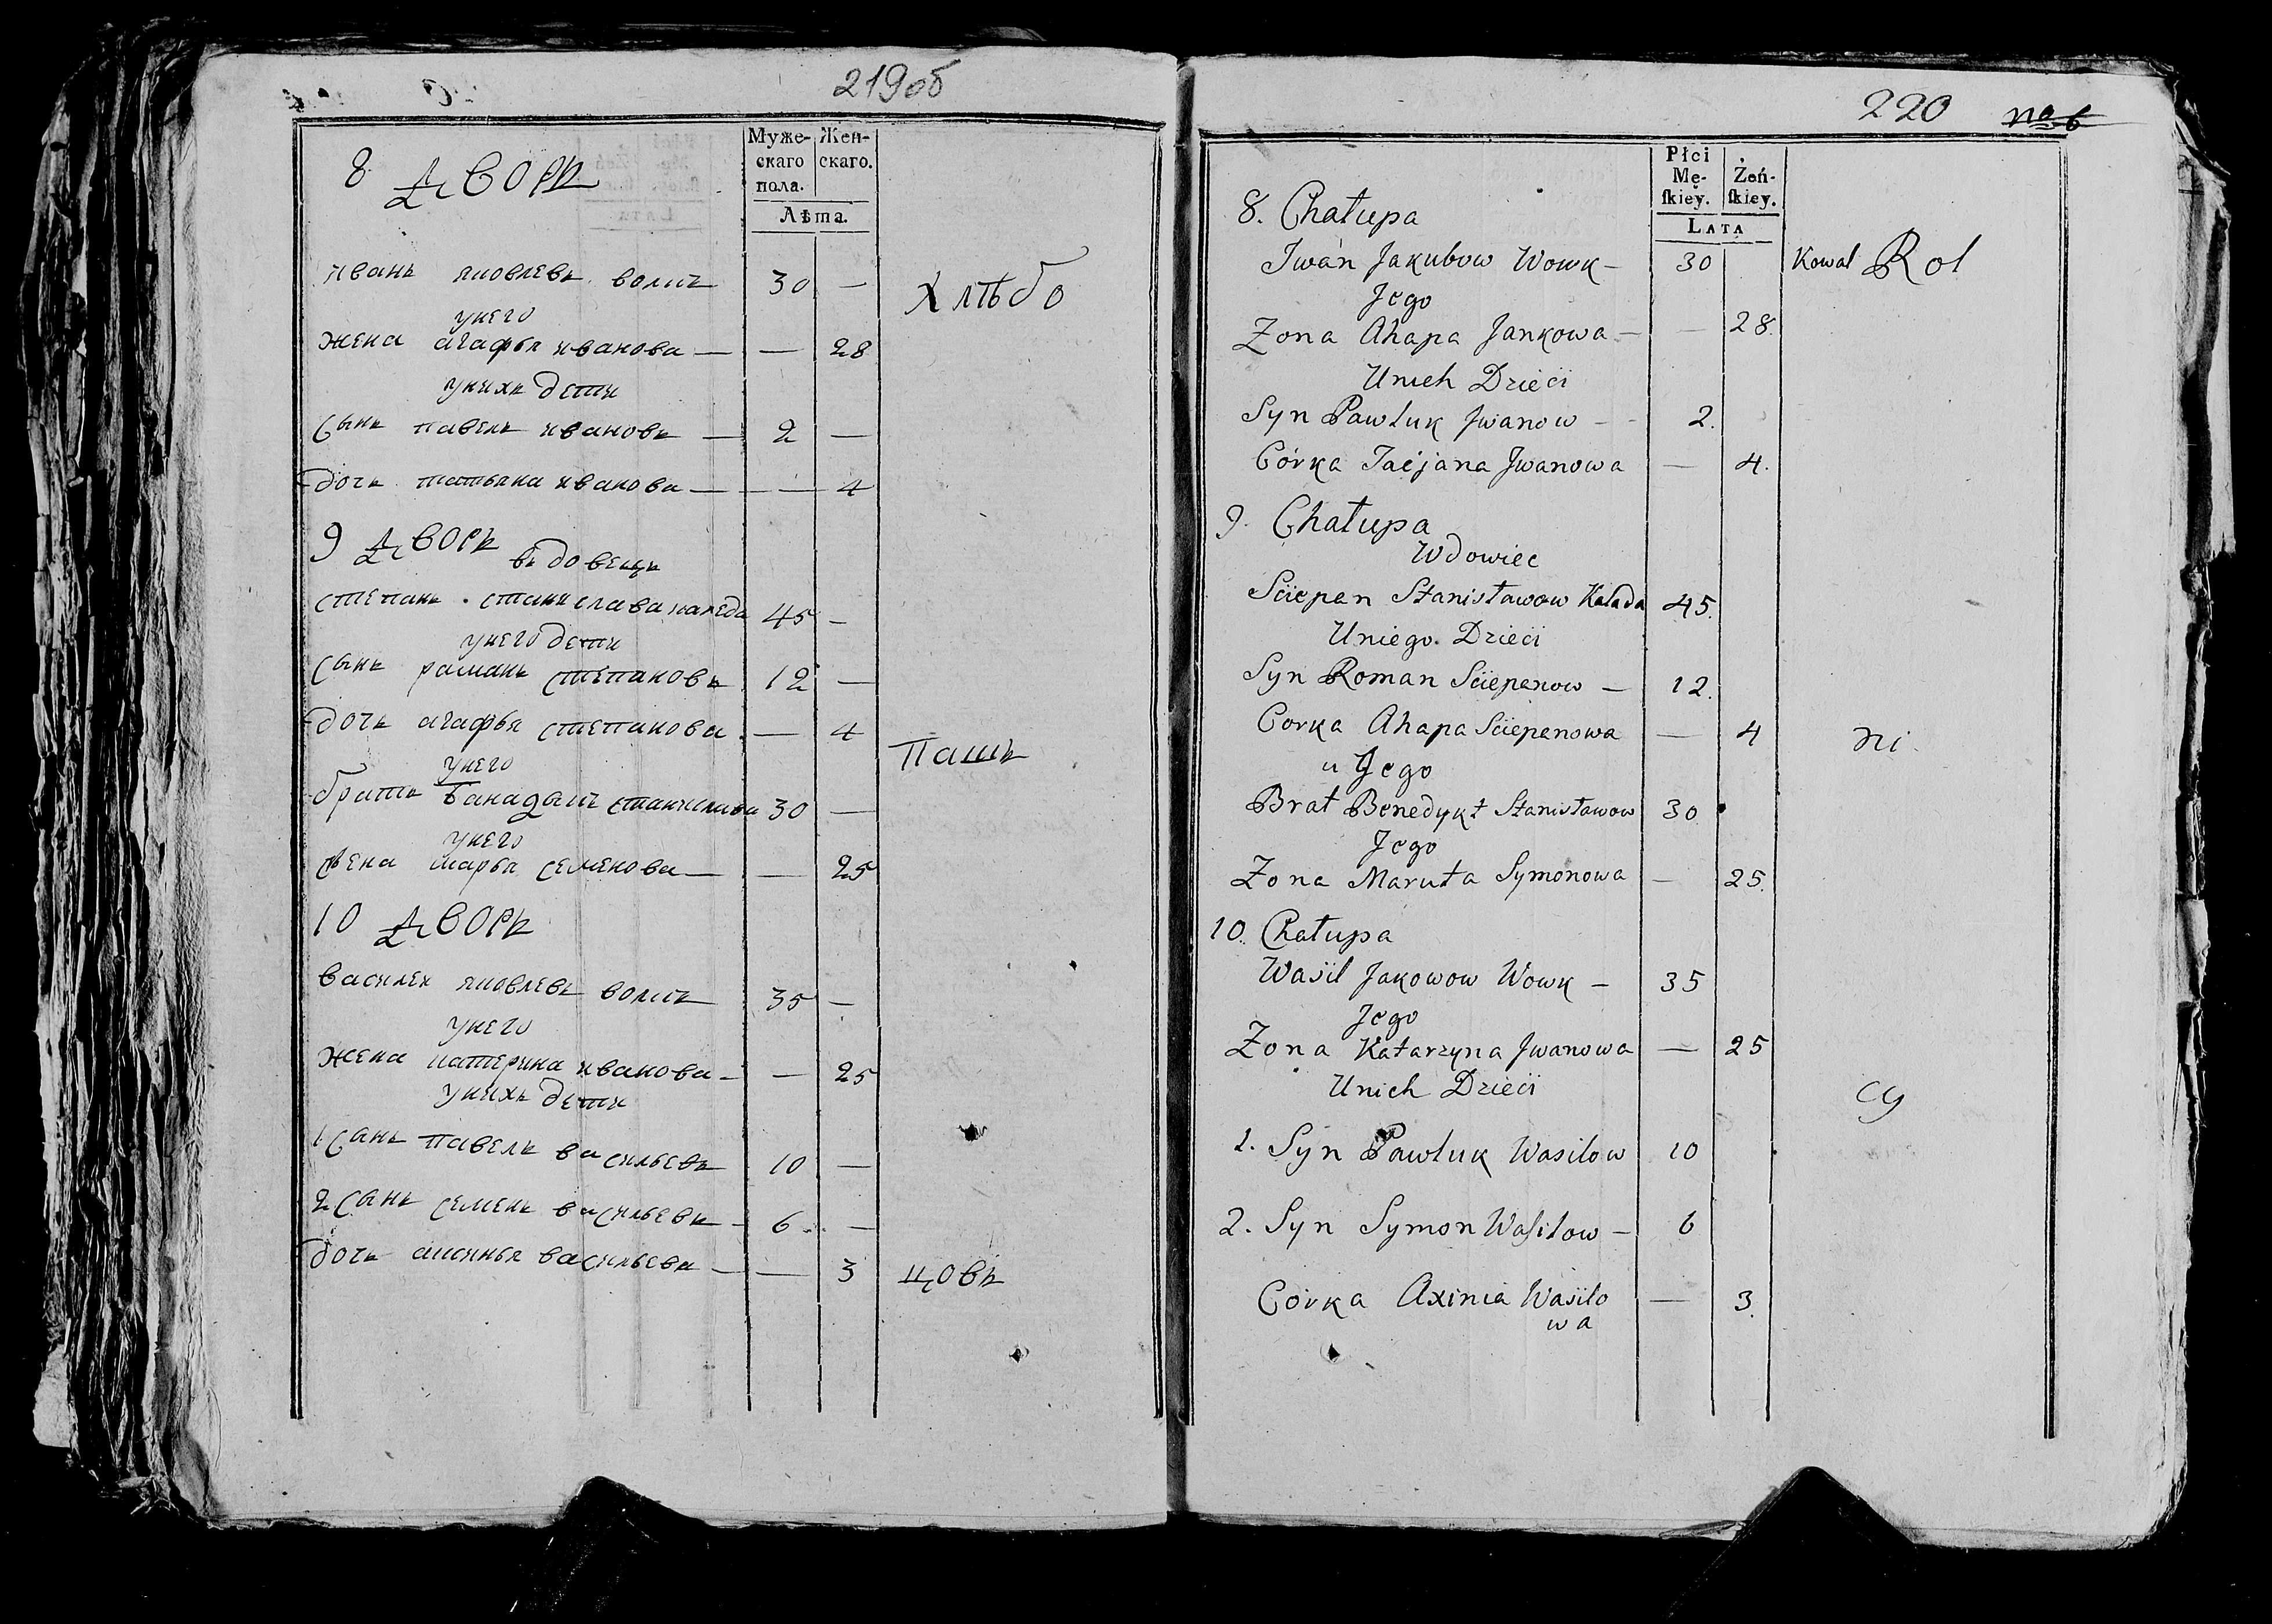 219об
Муже-
скаго
пола.
Жен-
скаго.
Лѣта.
8 Дворъ
иванъ яковлевъ волкъ 30 —
Хлѣбо
унего
жена агафья иванова — — 28
унихъ дети
сынъ павелъ ивановъ — 2 —
дочь татьяна иванова — — — 4
9 Дворъ
въдовецъ
степанъ станислава каледа 45 —
унего дети
сынъ романъ степановъ 12 —
дочь агафья степанова — 4
Пашъ
унего
братъ станислава 30 —
унего
жена марья семенова — — 25
10 Дворъ
василеи яковлевъ волкъ 35 —
унего
жена катерина иванова — — 25
унихъ дети
1 сынъ павелъ васильевъ 10 —
2 сынъ семенъ васильевъ — 6 —
дочь аксинья васильева — — 3
цовъ
220
Płci
Mę-
ſkiey.
Żeń-
ſkiey.
Lata
8. Chałupa
Jwan Jakubow Wowk — 30
Kowal Rol
Jego
Zona Ahapa Jankowa — — 28.
Unich Dzieci
Syn Pawluk Jwanow — - 2.
Córka Tacjana Jwanowa — 4.
9. Chałupa
Wdowiec
Sciepan Stanisławow Kalada 45.
Uniego Dzieci
Syn Roman Sciepanow — 12.
Corka Ahapa Sciepanowa — 4
ni
u Jego
Brat Benedykt Stanisławow 30
Jego
Zona Maruta Symonowa — 25.
10. Chałupa
Wasil Jakowow Wowk — 35
Jego
Zona Katarzyna Jwanowa — 25
Unich Dzieci
cy
1. Syn Pawluk Wasilow 10
2. Syn Symon Waſilow — 6
Córka Axinia Wasilo — 3.
wa